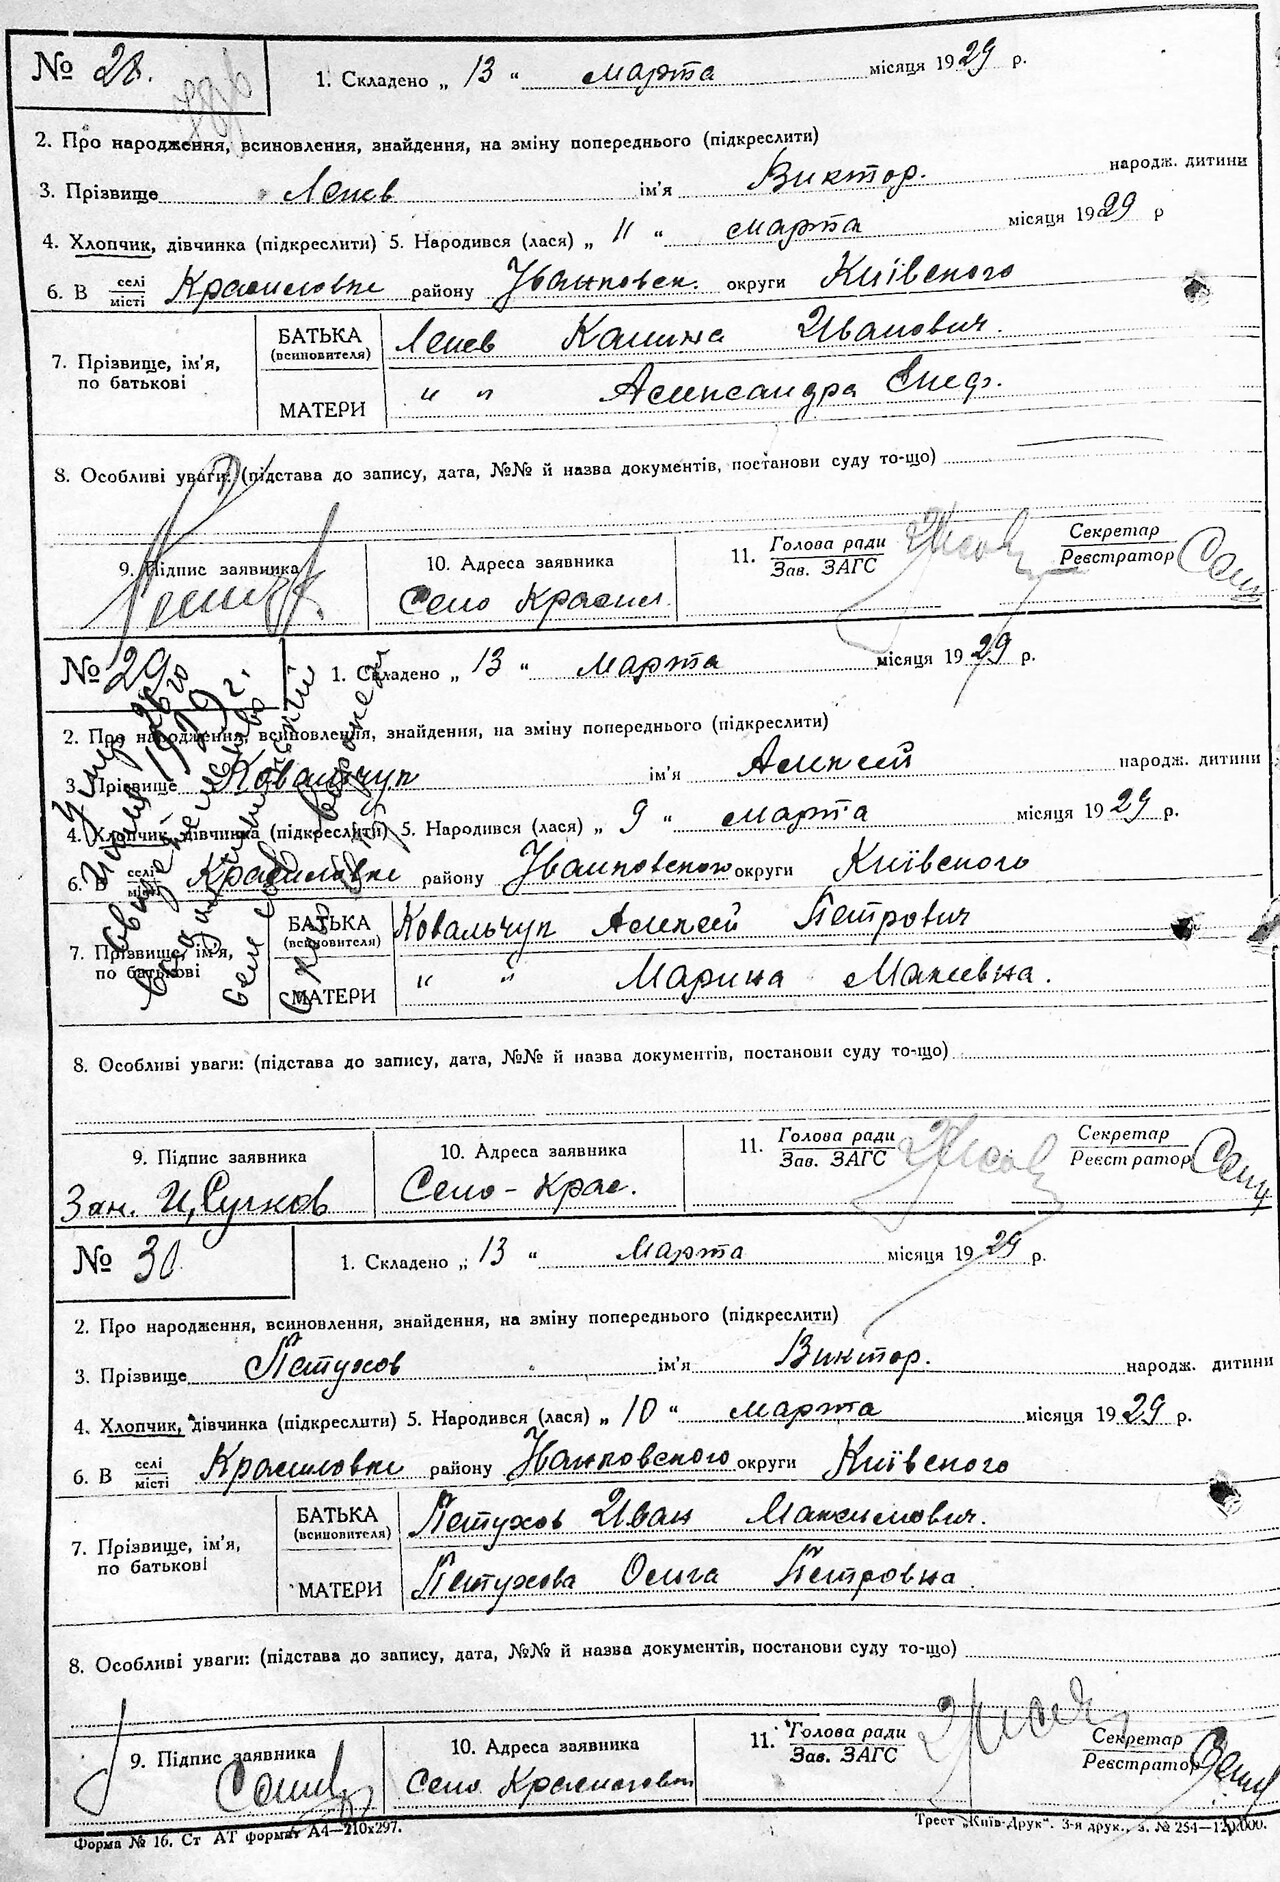 № 28.
1. Складено „ 13 “ марта місяця 1929 р.
2. Про народження, всиновлення, знайдення, на зміну попереднього (підкреслити)
3. Прізвище Ленев ім'я Виктор. народж. дитини
4. Хлопчик, дівчинка (підкреслити) 5. Народився (лася) „ 11 “ марта місяця 1929 р
6. В селі місті Красиловке району Іванковск. округи Київского
7. Прізвище, ім'я, по батькові
БАТЬКА (всиновителя) Ленев Иванович.
МАТЕРИ „ „ Александра
8. Особливі уваги: (підстава до запису, дата, №№ й назва документів, постанови суду то-що)
9. Підпис заявника
10. Адреса заявника
Село Красил
11. Голова ради Зав. ЗАГС
Секретар Реєстратор
№ 29
1. Складено „ 13 “ марта місяця 1929 р.
2. Про народження, всиновлення, знайдення, на зміну попереднього (підкреслити)
3. Прізвище Ковальчук ім'я Алексей народж. дитини
4. Хлопчик, дівчинка (підкреслити) 5. Народився (лася) „ 9 “ марта місяця 1929 р.
6. В селі місті Красиловке району Іванковского округи Київского
7. Прізвище, ім'я, по батькові
БАТЬКА (всиновителя) Ковальчук Алексей Петрович
МАТЕРИ „ „ Марина
8. Особливі уваги: (підстава до запису, дата, №№ й назва документів, постанови суду то-що)
9. Підпис заявника
10. Адреса заявника
Село-Крас.
11. Голова ради Зав. ЗАГС
Секретар Реєстратор
№ 30
1. Складено „ 13 “ марта місяця 1929 р.
2. Про народження, всиновлення, знайдення, на зміну попереднього (підкреслити)
3. Прізвище Петухов ім'я Виктор. народж. дитини
4. Хлопчик, дівчинка (підкреслити) 5. Народився (лася) „ 10 “ марта місяця 1929 р.
6. В селі місті Красиловке району Іванковского округи Київского
7. Прізвище, ім'я, по батькові
БАТЬКА (всиновителя) Петухов Иван Максимович.
МАТЕРИ Петухова Ольга Петровна
8. Особливі уваги: (підстава до запису, дата, №№ й назва документів, постанови суду то-що)
9. Підпис заявника
10. Адреса заявника
Село
11. Голова ради Зав. ЗАГС
Секретар Реєстратор
Форма № 16. Ст АТ формат А4—210х297.
Трест „Київ-Друк“. 3-я друк., з. № 254—120.000.